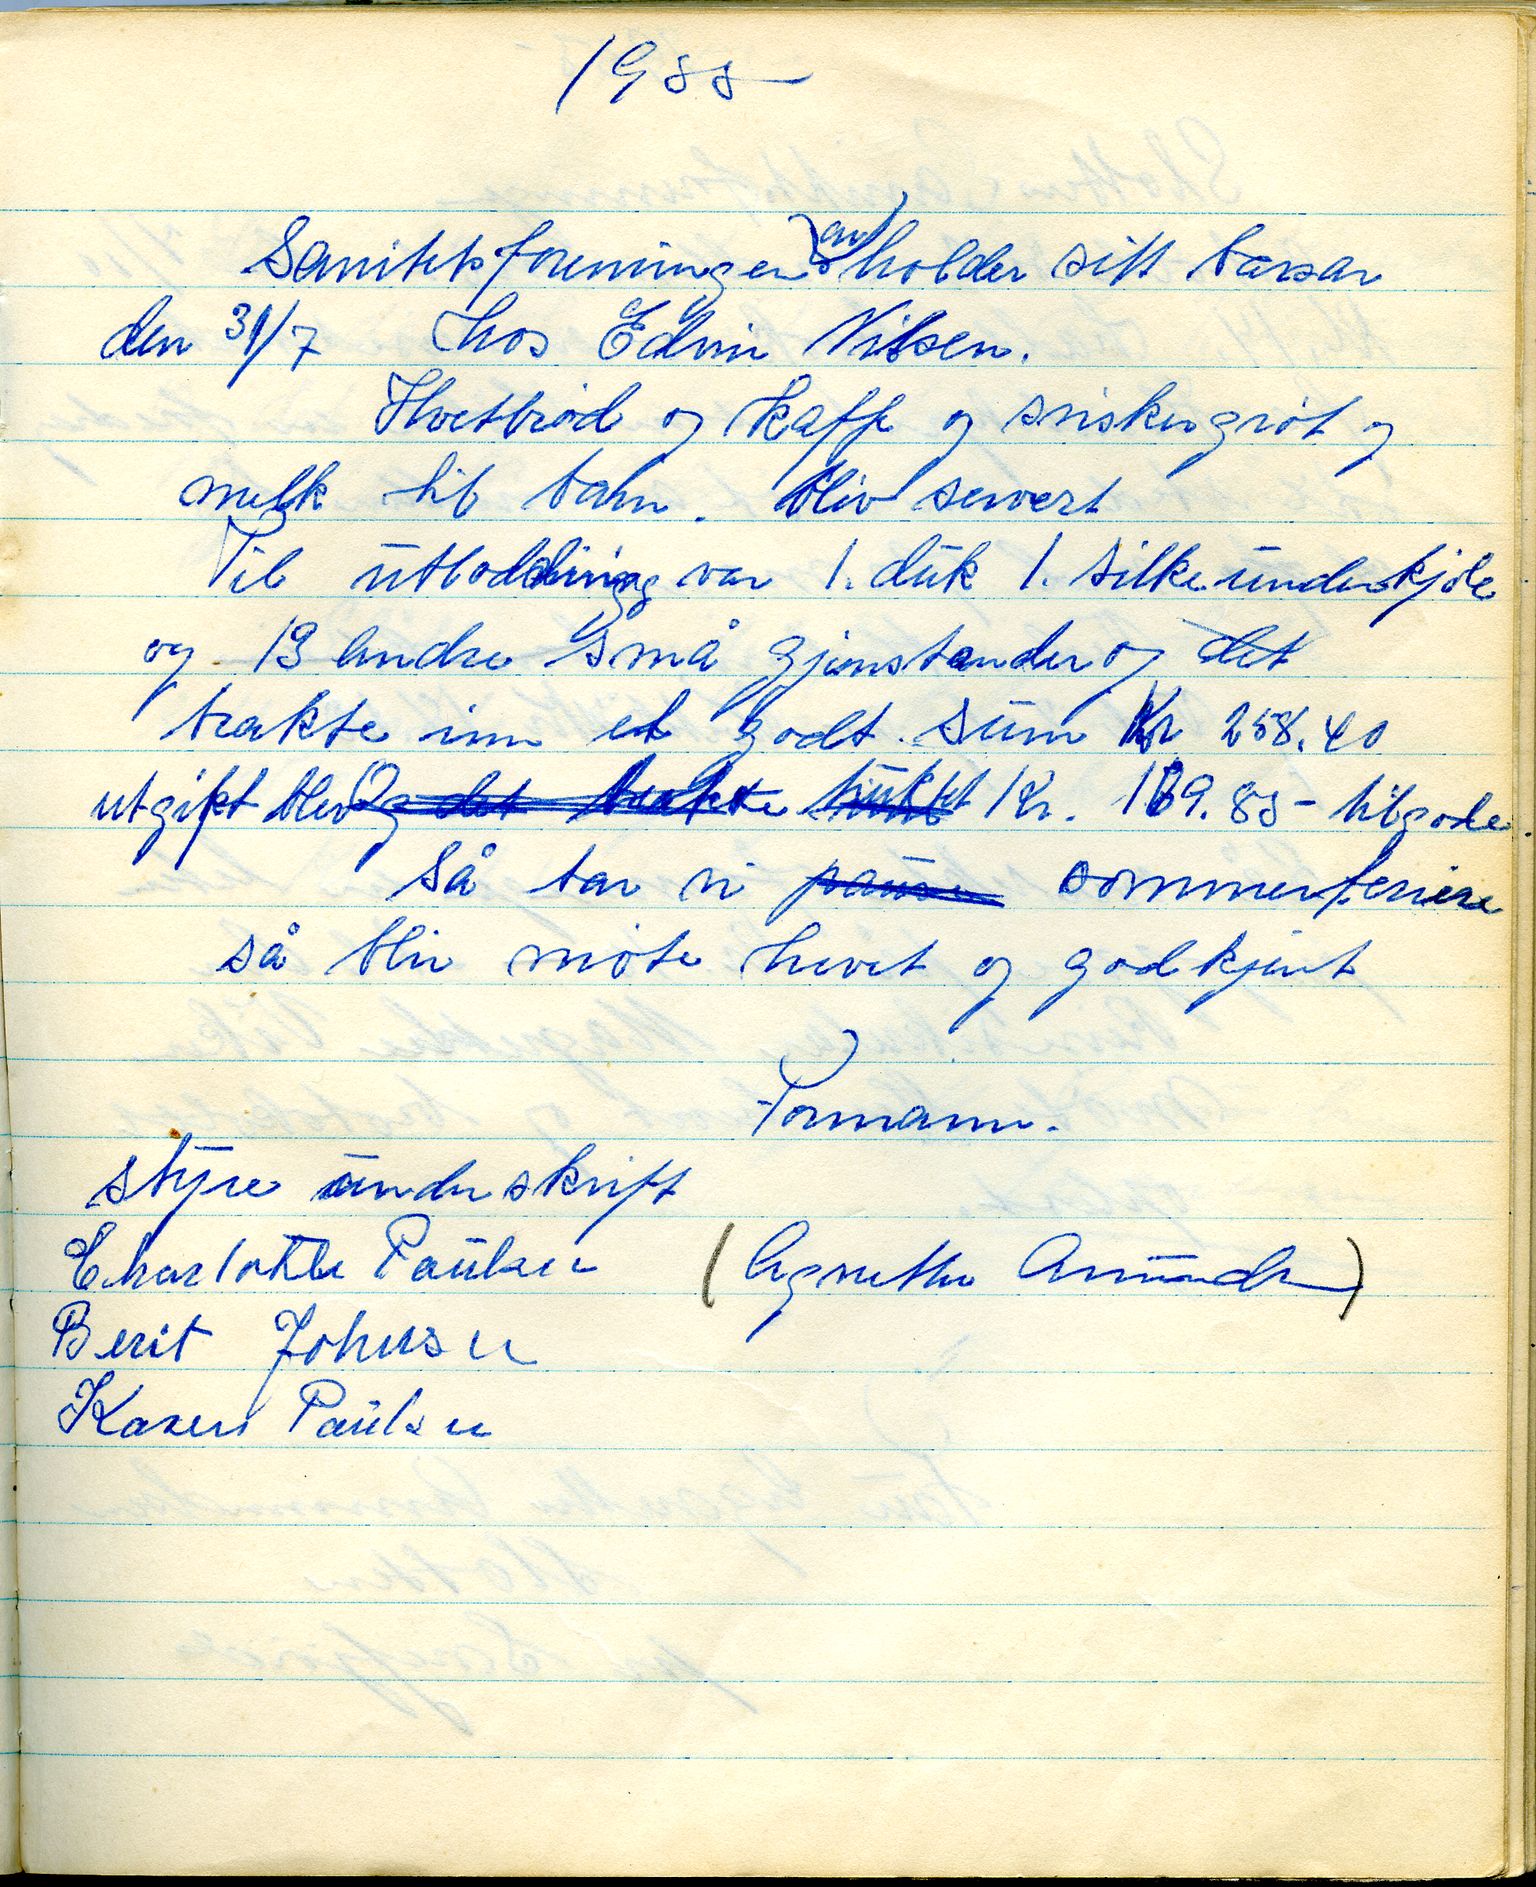 1955
Sanitetsforeningen avholder sitt basar
den 31/7 hos Edvin Nilsen.
Hvetbrød og kaffe og sviskergrøt og
melk til barn. bliv servert
Til utlodding var 1. duk 1. silke underkjole
og 13 andre små gjenstander og det
trakte inn et godt sum Kr 258.40
utgift blev Og det trakte Kr. 169.85 - tilgode.
Så tar vi pause sommerferiere
så bliv møte hevet og godkjent
Formann.
Styre underskrift
Charlotte Paulsen (Agnethe Amundsen)
Berit Johnsen
Karen Paulsen